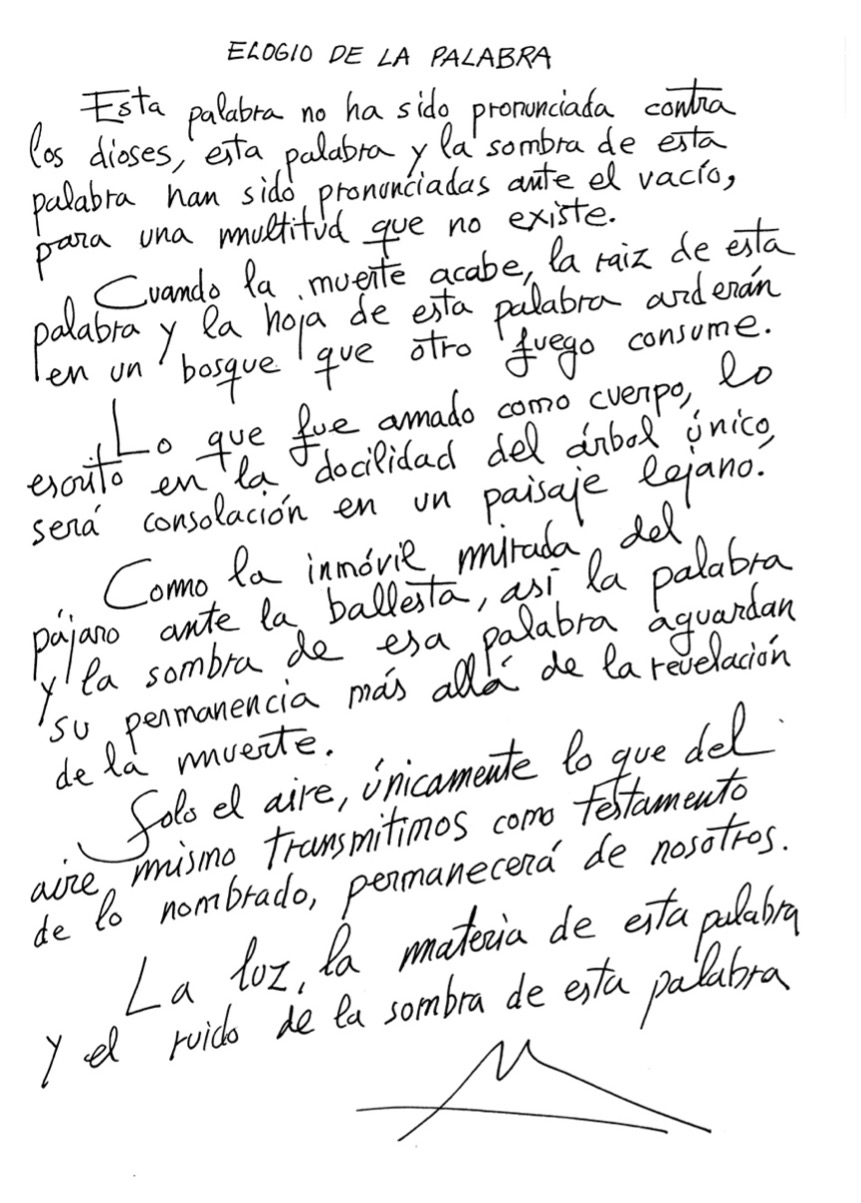 ELOGIO DE LA PALABRA
Esta palabra no ha sido pronunciada contra
los dioses, esta palabra y la sombra de esta
palabra han sido pronunciadas ante el vacío,
para una multitud que no existe.
Cuando la muerte acabe, la raiz de esta
palabra y la hoja de esta palabra arderán
en un bosque que otro fuego consume.
Lo que fue amado como cuerpo, lo
escrito en la docilidad del árbol único,
será consolación en un paisaje lejano.
Como la inmóvil mirada del
pájaro ante la ballesta, así la palabra
y la sombra de esa palabra aguardan
su permanencia más allá de la revelación
de la muerte.
Solo el aire, únicamente lo que del
aire mismo transmitimos como testamento
de lo nombrado, permanecerá de nosotros.
La luz, la materia de esta palabra
y el ruido de la sombra de esta palabra